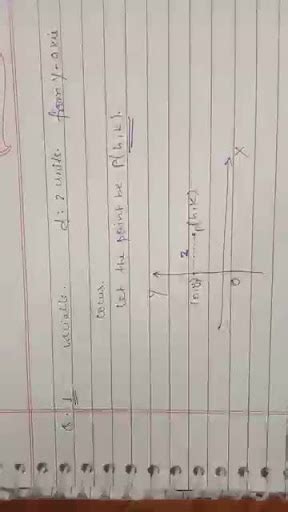 Q.1 variable. d = 2 units. from Y-axis
locus.
Let the point be P(h,k).
Y
2
P(h,k)
X
O